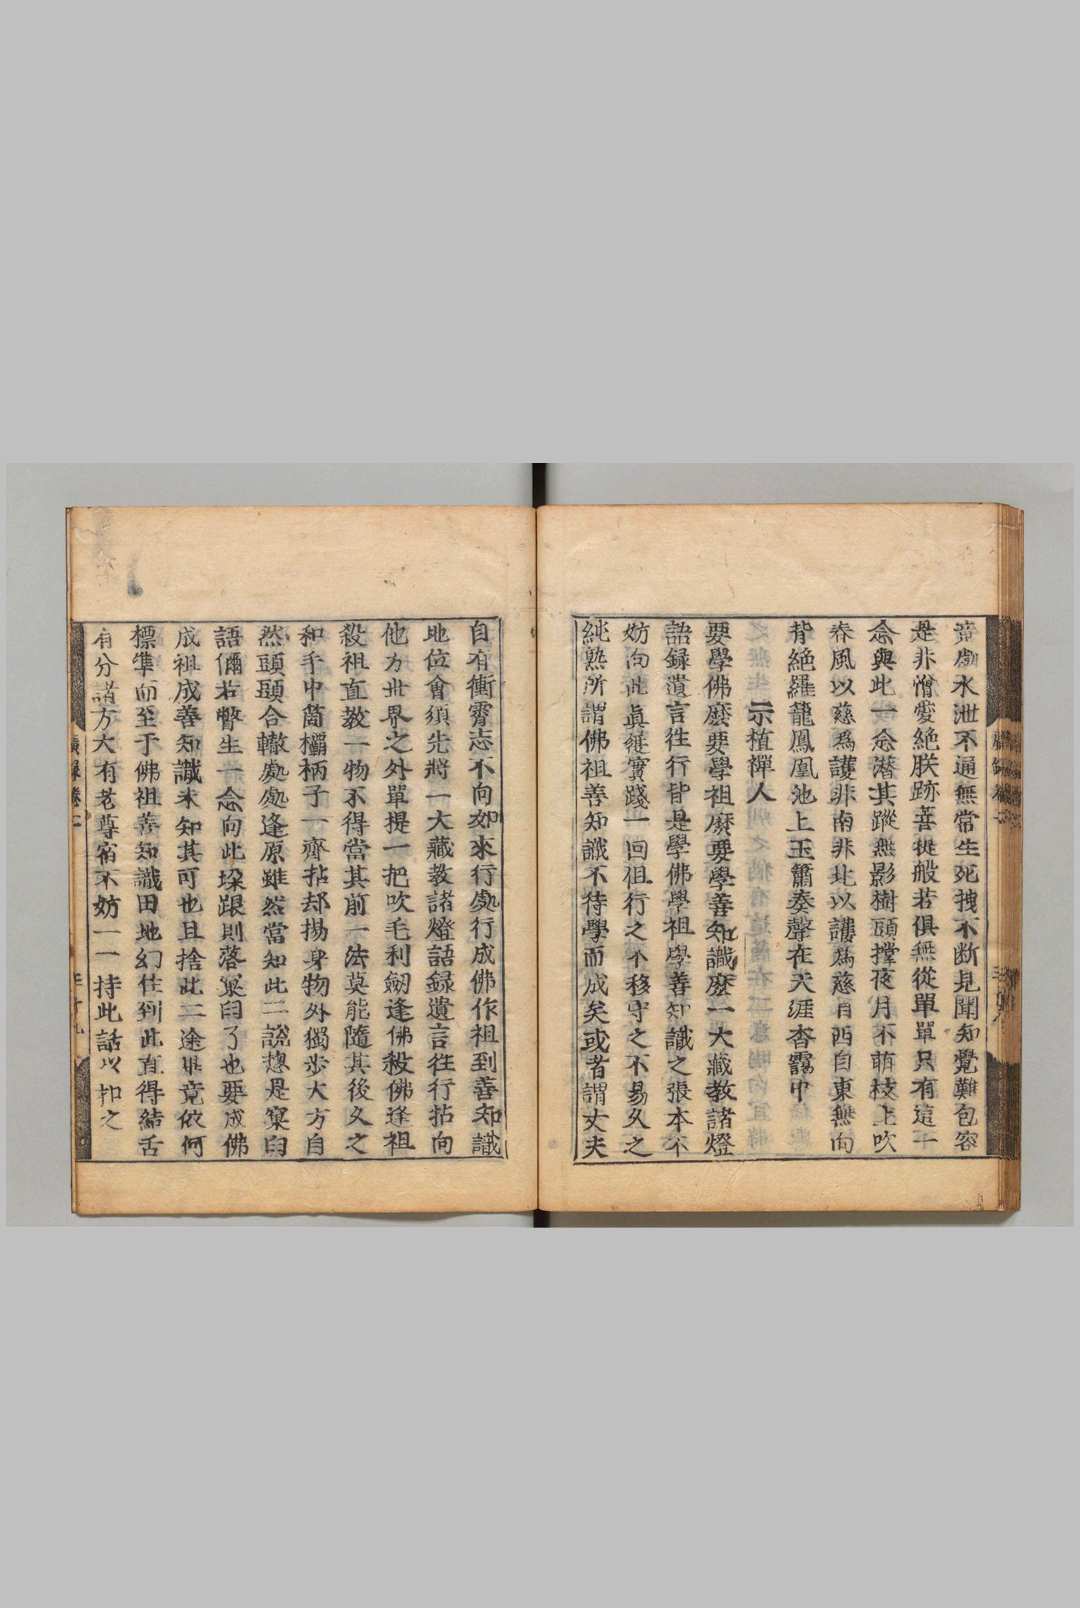 水泄不通無常生死拽不斷見聞知覺難包容
是非憎愛絶朕跡菩提般若俱無從單單只有這一
念與此一念潛其蹤無影樹頭撑夜月不萌枝上吹
春風以慈為護非南非北以護為慈自西自東無向
背絶羅籠鳳凰池上玉簫奏聲在天涯杳靄中
示植禪人
要學佛麼要學祖麼要學善知識麼一大藏教諸燈
語録遺言徃行皆是學佛學祖學善知識之張本不
妨向此眞履實踐一回徂行之不移守之不易久之
純熟所謂佛祖善知識不待學而成矣或者謂丈夫
自有衝霄志不向如來行處行成佛作祖到善知識
地位會須先將一大藏教諸燈語録遺言徃行拈向
他方世界之外單提一把吹毛利劒逢佛殺佛逢祖
殺祖直教一物不得當其前一法莫能隨其後久之
和手中箇欛柄子一齊拈却揚身物外獨步大方自
然頭頭合轍處處逢原雖然當知此二說總是窠臼
語儞若瞥生一念向此垜跟則落窠臼了也要成佛
成祖成善知識未知其可也且捨此二途畢竟依何
標準而至于佛祖善知識田地幻住到此直得結舌
有分諸方大有老尊宿不妨一一持此話以扣之
廣録卷